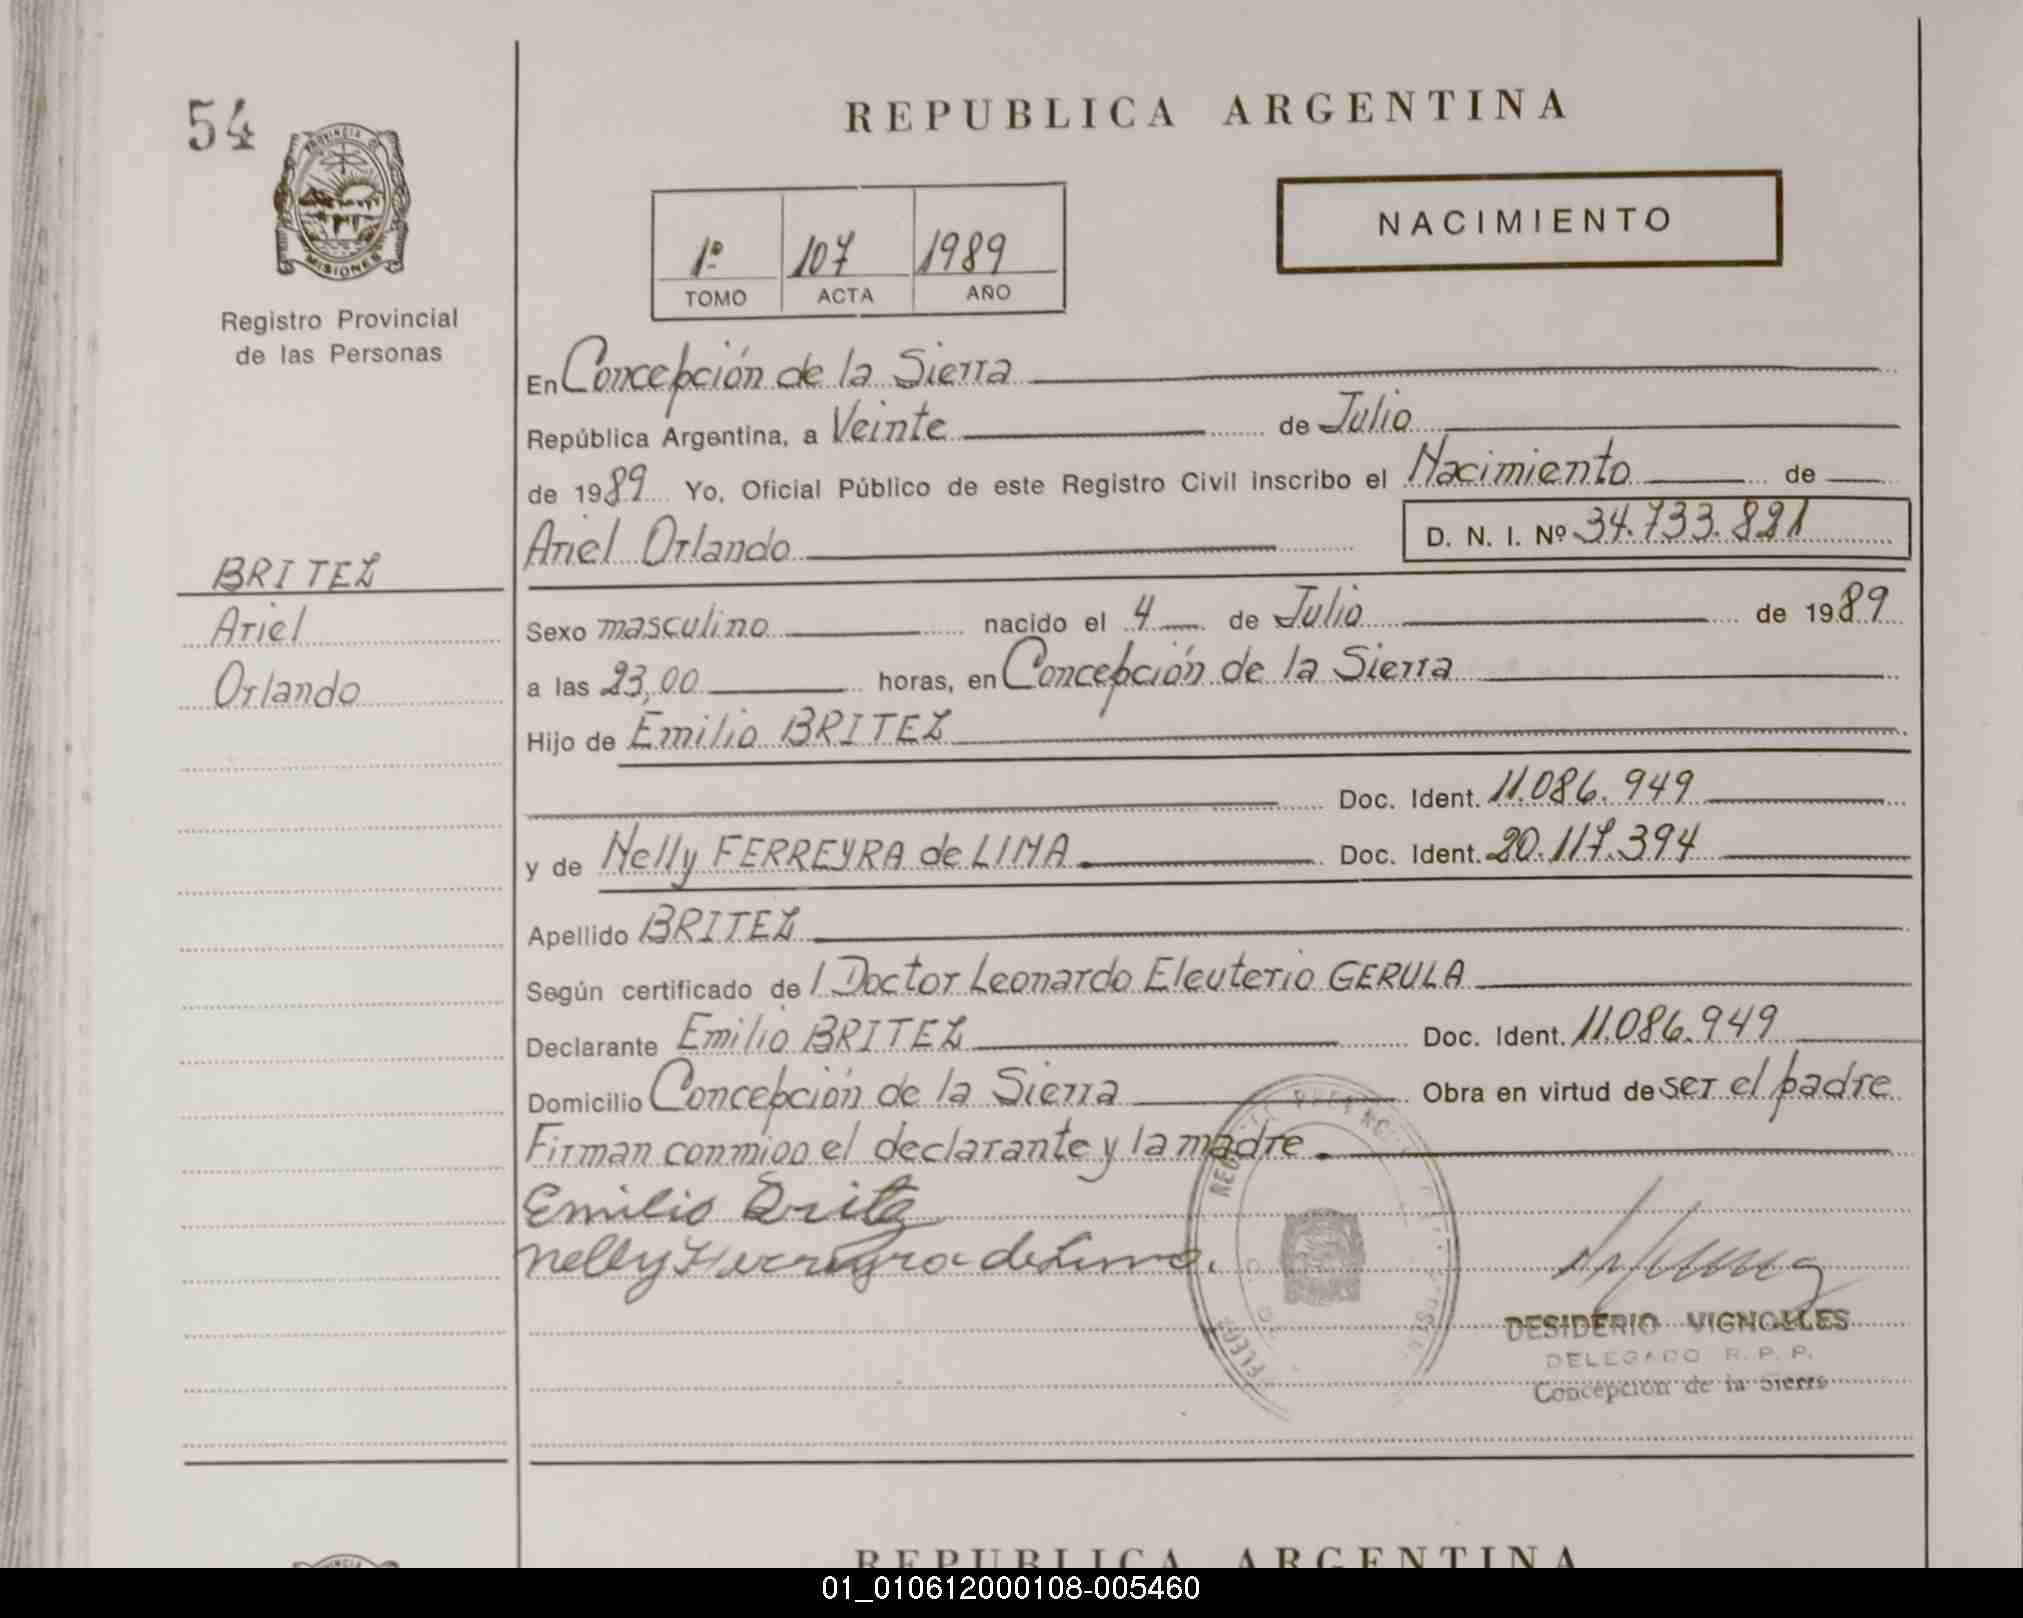 54
PROVINCIA DE
MISIONES
Registro Provincial
de las Personas
REPUBLICA ARGENTINA
NACIMIENTO
1º 107 1989
TOMO ACTA AÑO
En Concepción de la Sierra
República Argentina, a Veinte de Julio
de 1989 Yo, Oficial Público de este Registro Civil inscribo el Nacimiento de
Ariel Orlando D. N. I. Nº 34.733.821
BRITEZ
Ariel
Orlando
Sexo masculino nacido el 4 de Julio de 1989
a las 23,00 horas, en Concepción de la Sierra
Hijo de Emilio BRITEZ
Doc. Ident. 11.086.949
y de Nelly FERREYRA de LIMA Doc. Ident. 20.117.394
Apellido BRITEZ
Según certificado de l Doctor Leonardo Eleuterio GERULA
Declarante Emilio BRITEZ Doc. Ident. 11.086.949
Domicilio Concepción de la Sierra Obra en virtud de ser el padre
Firman conmigo el declarante y la madre.
Emilio Britez
Nelly Ferreyra de Lima.
DESIDERIO VIGNOLLES
DELEGADO R. P. P.
Concepción de la Sierra
REPUBLICA ARGENTINA
01_010612000108-005460